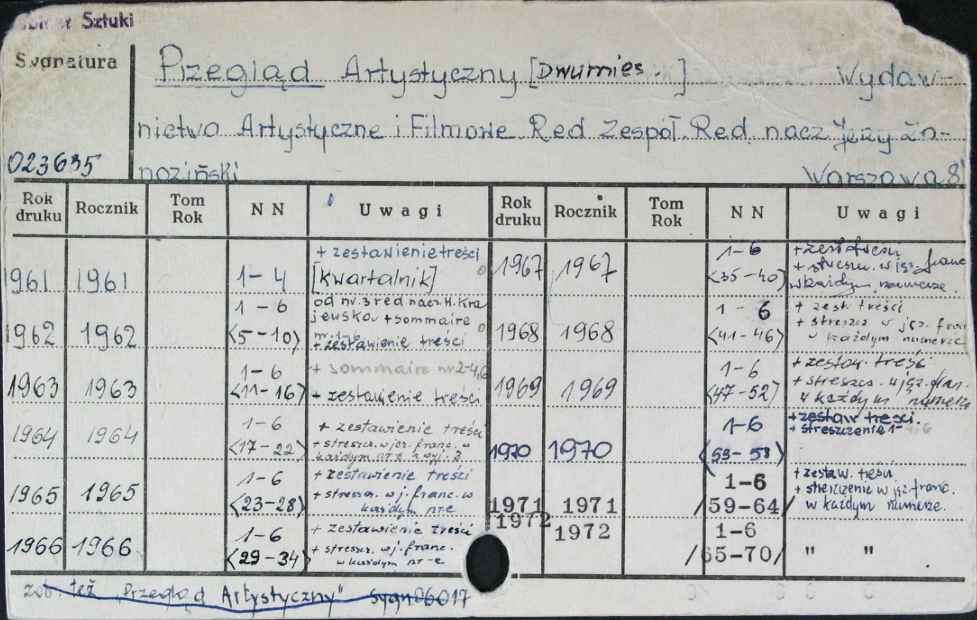 Sztuki
Sygnatura
Przegląd Artystyczny [Dwumies. ] Wydaw-
nictwo Artystyczne i Filmowe Red Zespół Red. nacz Jerzy Za-
023635 noziński Warszawa 8°
Rok druku Rocznik Tom Rok NN Uwagi Rok druku Rocznik Tom Rok NN Uwagi
1961 1961 1-4 + zestawienie treści [kwartalnik]
1967 1967 1-6 <35-40> + streszcz. w jęz. franc w każdym numerze
1962 1962 1-6 <5-10> od nr. 3 red nacz. H. Krajewska + sommaire + zestawienie treści
1968 1968 1-6 <41-46> + zest. treści + streszcz w jęz. fran w każdym numerze
1963 1963 1-6 <11-16> + sommaire nr 2-4,6 + zestawienie treści
1969 1969 1-6 <47-52> + zestaw. treści + streszcz. w jęz. fran. w każdym numerze
1964 1964 1-6 <17-22> + zestawienie treści + streszcz. w jęz. franc. w każdym nr-ze
1970 1970 1-6 <53-58> + zestaw treści. + streszczenie 1-
1965 1965 1-6 <23-28> + zestawienie treści + streszcz. w j. franc. w każdym nr-e
1971 1971 1-6 /59-64/ + zestaw. treści + streszczenie w jęz. franc. w każdym numerze.
1966 1966 1-6 <29-34> + zestawienie treści + streszcz. w j. franc. w każdym nr-e
1972 1972 1-6 /65-70/ " "
zob. też "Przegląd Artystyczny" Sygn 06017